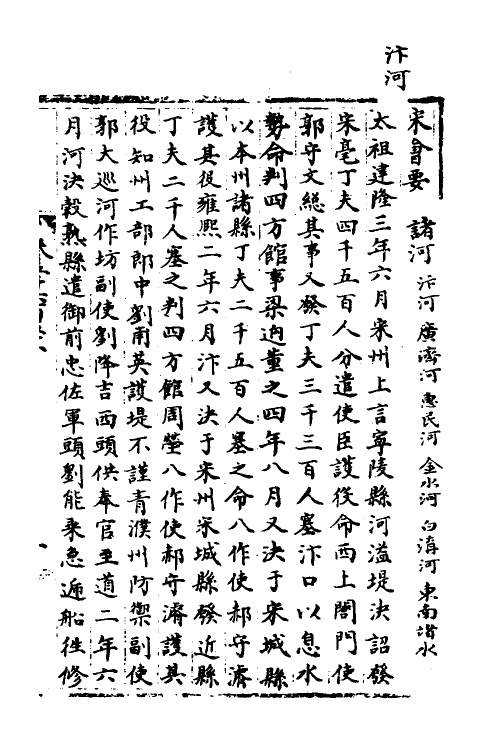 汴河
宋會要　諸河　汴河　廣濟河　惠民河　金水河　白溝河　東南諸水
太祖建隆三年六月宋州上言寧陵縣河溢堤決詔發
宋亳丁夫四千五百人分遣使臣護役命西上閤門使
郭守文總其事又發丁夫三千三百人塞汴口以息水
勢命判四方館事梁迥董之四年八月又決于宋城縣
以本州諸縣丁夫二千五百人塞之命八作使郝守濬
護其役雍熙二年六月汴又決于宋州宋城縣發近縣
丁夫二千人塞之判四方館周瑩八作使郝守濬護其
役知州工部郎中劉甫英護堤不謹責濮州防禦副使
郭大巡河作坊副使劉降吉西頭供奉官至道二年六
月河決穀熟縣遣御前忠佐軍頭劉能乘急遞船徃修